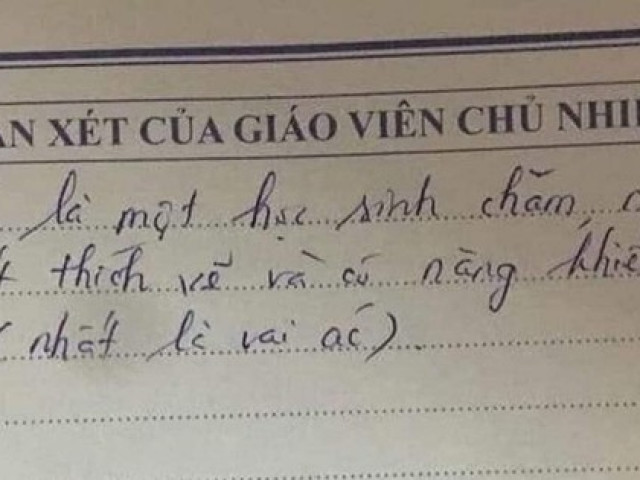 ẬN XÉT CỦA GIÁO VIÊN CHỦ NHIỆ
là một học sinh chăm
thích vẽ và có năng khiế
(nhất là vai ác)